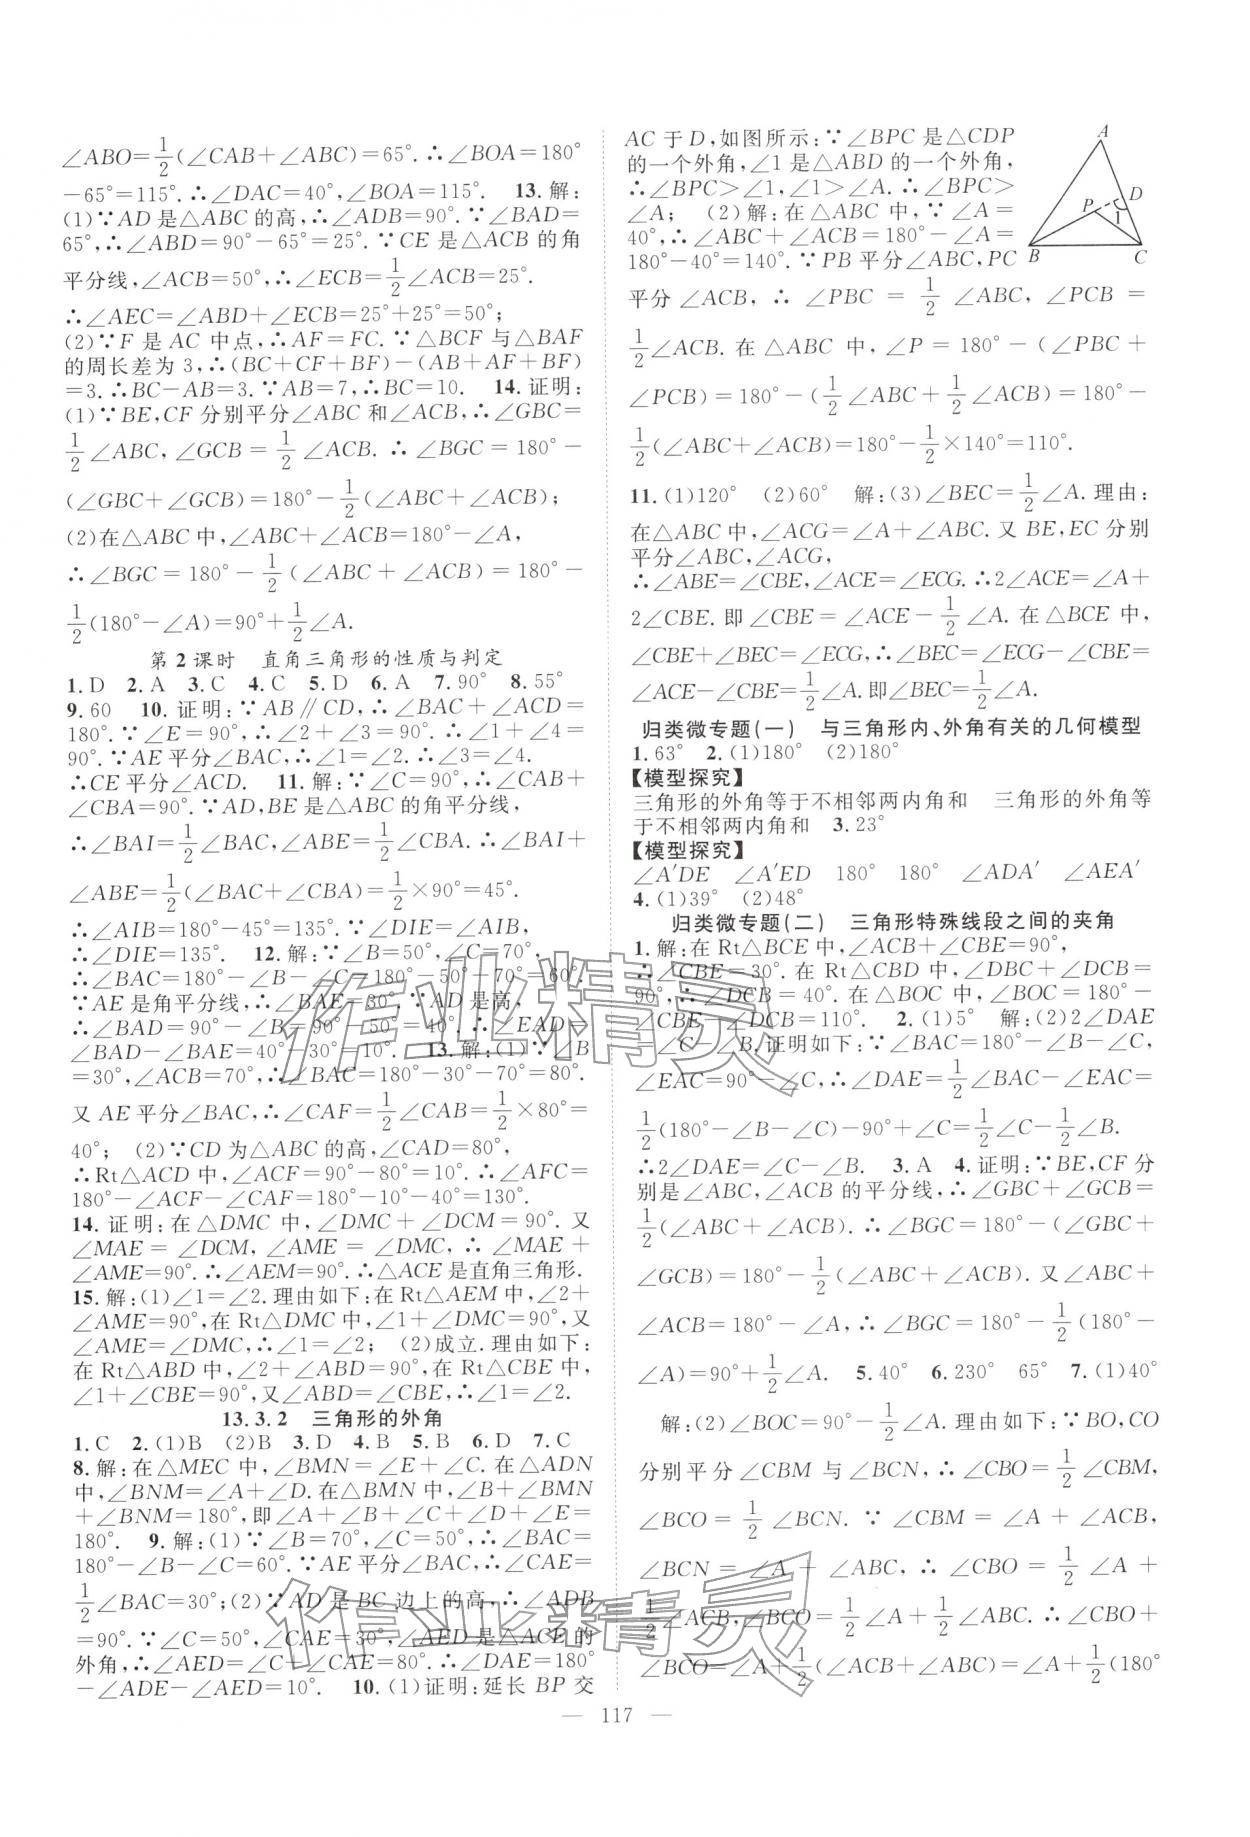 ∠ABO=1/2(∠CAB+∠ABC)=65°.∴∠BOA=180°
-65°=115°.∴∠DAC=40°,∠BOA=115°. 13.解:
(1)∵AD是△ABC的高,∴∠ADB=90°.∵∠BAD=
65°,∴∠ABD=90°-65°=25°.∵CE是△ACB的角
平分线,∠ACB=50°,∴∠ECB=1/2∠ACB=25°.
∴∠AEC=∠ABD+∠ECB=25°+25°=50°;
(2)∵F是AC中点,∴AF=FC.∵△BCF与△BAF
的周长差为3,∴(BC+CF+BF)-(AB+AF+BF)
=3.∴BC-AB=3.∵AB=7,∴BC=10. 14.证明:
(1)∵BE,CF分别平分∠ABC和∠ACB,∴∠GBC=
1/2∠ABC,∠GCB=1/2∠ACB.∴∠BGC=180°-
(∠GBC+∠GCB)=180°-1/2(∠ABC+∠ACB);
(2)在△ABC中,∠ABC+∠ACB=180°-∠A,
∴∠BGC=180°-1/2(∠ABC+∠ACB)=180°-
1/2(180°-∠A)=90°+1/2∠A.
第2课时 直角三角形的性质与判定
1.D 2.A 3.C 4.C 5.D 6.A 7.90° 8.55°
9.60 10.证明:∵AB∥CD,∴∠BAC+∠ACD=
180°.∵∠E=90°,∴∠2+∠3=90°.∴∠1+∠4=
90°.∵AE平分∠BAC,∴∠1=∠2.∴∠3=∠4.
∴CE平分∠ACD. 11.解:∵∠C=90°,∴∠CAB+
∠CBA=90°.∵AD,BE是△ABC的角平分线,
∴∠BAI=1/2∠BAC,∠ABE=1/2∠CBA.∴∠BAI+
∠ABE=1/2(∠BAC+∠CBA)=1/2×90°=45°.
∴∠AIB=180°-45°=135°.∵∠DIE=∠AIB,
∴∠DIE=135°. 12.解:∵∠B=50°,∠C=70°,
∴∠BAC=180°-∠B-∠C=180°-50°-70°=60°.
∵AE是角平分线,∴∠BAE=30°.∵AD是高,
∴∠BAD=90°-∠B=90°-50°=40°.∴∠EAD=
∠BAD-∠BAE=40°-30°=10°. 13.解:(1)∵∠B
=30°,∠ACB=70°,∴∠BAC=180°-30°-70°=80°.
又AE平分∠BAC,∴∠CAF=1/2∠CAB=1/2×80°=
40°; (2)∵CD为△ABC的高,∠CAD=80°,
∴Rt△ACD中,∠ACF=90°-80°=10°.∴∠AFC=
180°-∠ACF-∠CAF=180°-10°-40°=130°.
14.证明:在△DMC中,∠DMC+∠DCM=90°.又
∠MAE=∠DCM,∠AME=∠DMC,∴∠MAE+
∠AME=90°.∴∠AEM=90°.∴△ACE是直角三角形.
15.解:(1)∠1=∠2.理由如下:在Rt△AEM中,∠2+
∠AME=90°,在Rt△DMC中,∠1+∠DMC=90°,又
∠AME=∠DMC,∴∠1=∠2; (2)成立.理由如下:
在Rt△ABD中,∠2+∠ABD=90°,在Rt△CBE中,
∠1+∠CBE=90°,又∠ABD=∠CBE,∴∠1=∠2.
13.3.2 三角形的外角
1.C 2.(1)B (2)B 3.D 4.B 5.B 6.D 7.C
8.解:在△MEC中,∠BMN=∠E+∠C.在△ADN
中,∠BNM=∠A+∠D.在△BMN中,∠B+∠BMN
+∠BNM=180°,即∠A+∠B+∠C+∠D+∠E=
180°. 9.解:(1)∵∠B=70°,∠C=50°,∴∠BAC=
180°-∠B-∠C=60°.∵AE平分∠BAC,∴∠CAE=
1/2∠BAC=30°;(2)∵AD是BC边上的高,∴∠ADB
=90°.∵∠C=50°,∠CAE=30°,∠AED是△ACE的
外角,∴∠AED=∠C+∠CAE=80°.∴∠DAE=180°
-∠ADE-∠AED=10°. 10.(1)证明:延长BP交
AC于D,如图所示:∵∠BPC是△CDP
的一个外角,∠1是△ABD的一个外角,
∴∠BPC>∠1,∠1>∠A.∴∠BPC>
∠A; (2)解:在△ABC中,∵∠A=
40°,∴∠ABC+∠ACB=180°-∠A=
180°-40°=140°.∵PB平分∠ABC,PC
平分∠ACB,∴∠PBC=1/2∠ABC,∠PCB=
1/2∠ACB.在△ABC中,∠P=180°-(∠PBC+
∠PCB)=180°-(1/2∠ABC+1/2∠ACB)=180°-
1/2(∠ABC+∠ACB)=180°-1/2×140°=110°.
A
P
D
1
B
C
11.(1)120° (2)60° 解:(3)∠BEC=1/2∠A.理由:
在△ABC中,∠ACG=∠A+∠ABC.又BE,EC分别
平分∠ABC,∠ACG,
∴∠ABE=∠CBE,∠ACE=∠ECG.∴2∠ACE=∠A+
2∠CBE.即∠CBE=∠ACE-1/2∠A.在△BCE中,
∠CBE+∠BEC=∠ECG,∴∠BEC=∠ECG-∠CBE=
∠ACE-∠CBE=1/2∠A.即∠BEC=1/2∠A.
归类微专题(一) 与三角形内、外角有关的几何模型
1.63° 2.(1)180° (2)180°
【模型探究】
三角形的外角等于不相邻两内角和 三角形的外角等
于不相邻两内角和 3.23°
【模型探究】
∠A′DE ∠A′ED 180° 180° ∠ADA′ ∠AEA′
4.(1)39° (2)48°
归类微专题(二) 三角形特殊线段之间的夹角
1.解:在Rt△BCE中,∠ACB+∠CBE=90°,
∴∠CBE=30°.在Rt△CBD中,∠DBC+∠DCB=
90°,∴∠DCB=40°.在△BOC中,∠BOC=180°-
∠CBE-∠DCB=110°. 2.(1)5° 解:(2)2∠DAE
=∠C-∠B.证明如下:∵∠BAC=180°-∠B-∠C,
∠EAC=90°-∠C,∴∠DAE=1/2∠BAC-∠EAC=
1/2(180°-∠B-∠C)-90°+∠C=1/2∠C-1/2∠B.
∴2∠DAE=∠C-∠B. 3.A 4.证明:∵BE,CF分
别是∠ABC,∠ACB的平分线,∴∠GBC+∠GCB=
1/2(∠ABC+∠ACB).∴∠BGC=180°-(∠GBC+
∠GCB)=180°-1/2(∠ABC+∠ACB).又∠ABC+
∠ACB=180°-∠A,∴∠BGC=180°-1/2(180°-
∠A)=90°+1/2∠A. 5.40° 6.230° 65° 7.(1)40°
解:(2)∠BOC=90°-1/2∠A.理由如下:∵BO,CO
分别平分∠CBM与∠BCN,∴∠CBO=1/2∠CBM,
∠BCO=1/2∠BCN.∵∠CBM=∠A+∠ACB,
∠BCN=∠A+∠ABC,∴∠CBO=1/2∠A+
1/2∠ACB,∠BCO=1/2∠A+1/2∠ABC.∴∠CBO+
∠BCO=∠A+1/2(∠ACB+∠ABC)=∠A+1/2(180°
— 117 —
作业精灵
作业精灵